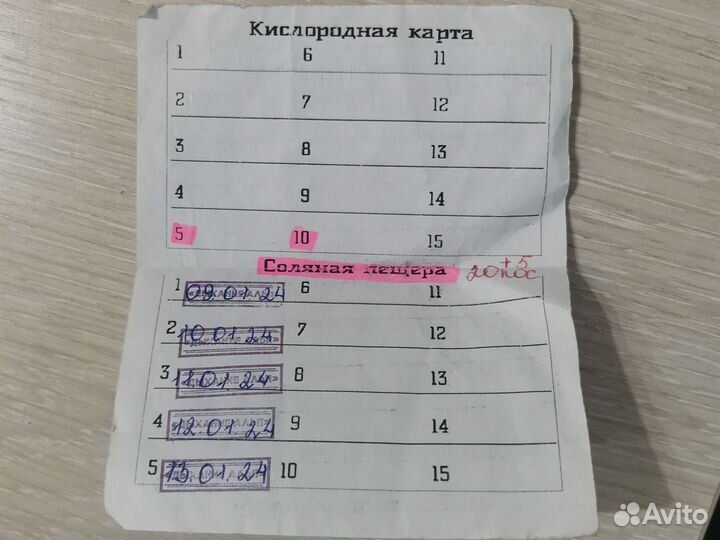 Кислородная карта
1 6 11
2 7 12
3 8 13
4 9 14
5 10 15
Соляная пещера +5
20 пос
1 09.01.24 6 11
2 10.01.24 7 12
3 11.01.24 8 13
4 12.01.24 9 14
5 13.01.24 10 15
Avito